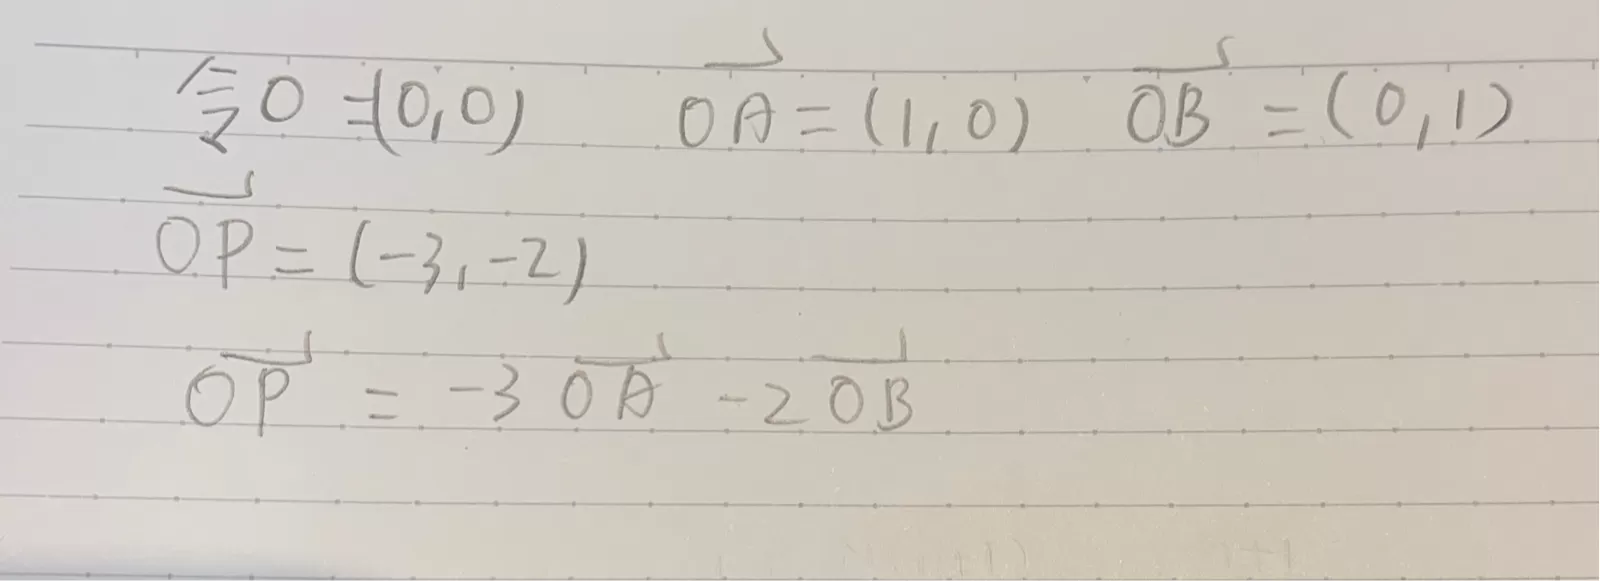 令O=(0,0) $\overrightarrow{OA}$=(1,0) $\overrightarrow{OB}$=(0,1)
$\overrightarrow{OP}$=(-3,-2)
$\overrightarrow{OP}$=-3$\overrightarrow{OA}$-2$\overrightarrow{OB}$